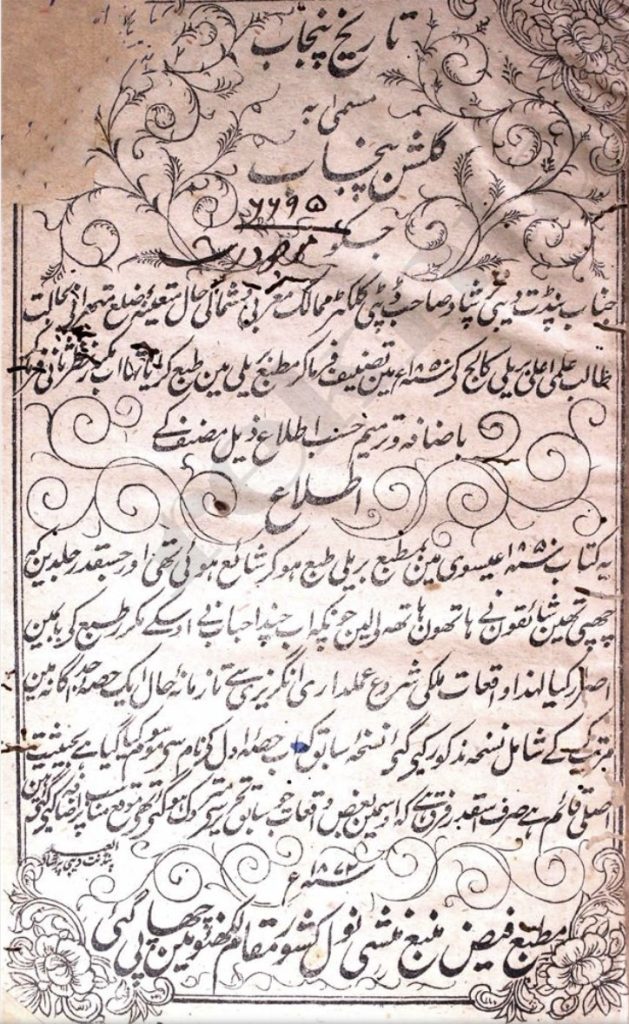 تاریخ پنجاب
مسمیٰ بہ
گلشن پنجاب
۶۶۹۵
جسکو
جناب پنڈت دیبی پرشاد صاحب ڈپٹی کلکٹر ممالک مغربی و شمالی حال متعینۂ ضلع متھرا نے بحالت
طالب علمی اعلیٰ بریلی کالج کے سنہ ۱۸۵۰ء مین تصنیف فرما کر مطبع بریلی مین طبع کرایا تھا اب بنظر ثانی
باضافہ و ترمیم حسب اطلاع ذیل مصنف کے
اطلاع
یہ کتاب سنہ ۱۸۵۰ عیسوی مین بمطبع بریلی طبع ہو کر شائع ہوئی تھی اور جسقدر جلدین کہ
چھپی تھین شائقون نے ہاتھون ہاتھ لے لین چونکہ اب چند احباب نے اوسکے مکرر طبع کی باب مین
اصرار کیا لہذا واقعات ملکی شروع عملداری انگریزی سے تا زمانۂ حال ایک حصۂ جداگانہ مین
مرتب کر کے شامل نسخہ مذکور کیے گئے نسخۂ سابق کہ اب حصۂ اول کے نام سے موسوم کیا گیا ہے بحیثیت
اصلی قائم ہے صرف اسقدر فرق ہے کہ اوسمین بعض واقعات جو سابق تحریر سے متروک ہو گئے تھے موقع مناسب پر اضافہ کیے گئے ہین
العبد
پنڈت دیبی پرشاد
سنہ ۱۸۷۲ء
مطبع فیض منبع منشی نول کشور مقام لکھنؤ مین چھاپی گئی